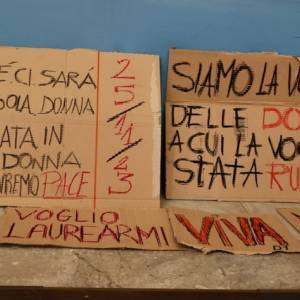 É CI SARÁ
SOLA DONNA
ATA IN
DONNA
VREMO PACE
25/11/23
SIAMO LA VO
DELLE DO
A CUI LA VO
STATA RU
VOGLIO
LAUREARMI
VIVA!